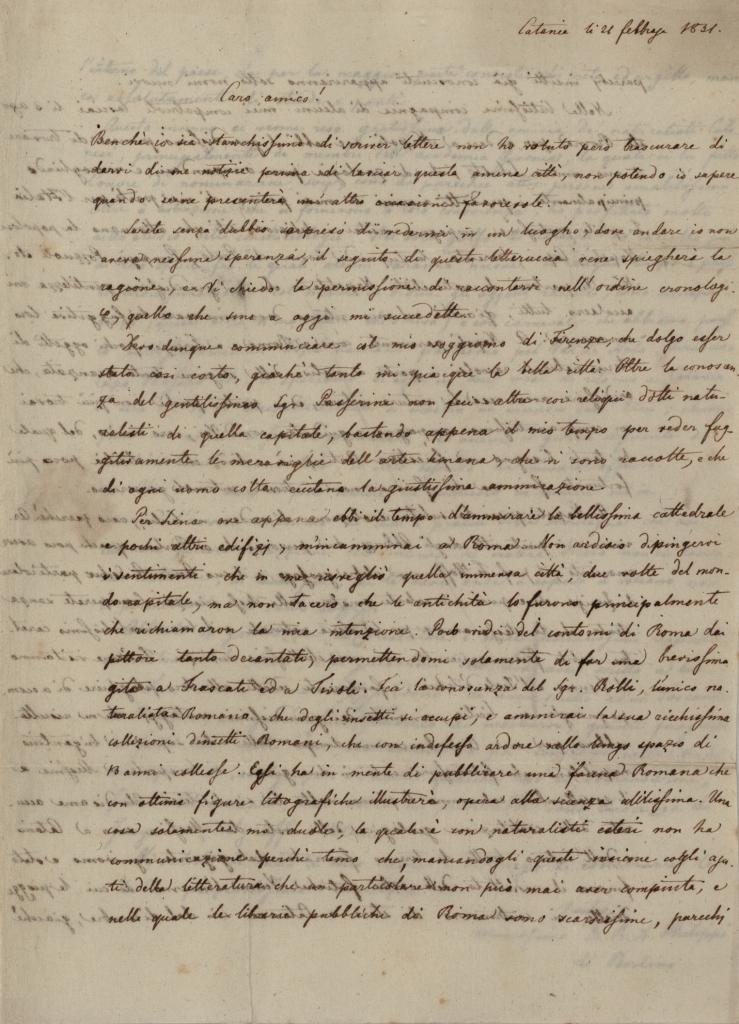 Catania li 21 febbrajo 1831.
Caro amico!
Benchè io sia stanchissimo di scriver lettere non ho voluto però trascurare di
darvi di me notizie prima di lasciar questa amena città, non potendo io sapere
quando sene presenterà un' altra occasione favorevole.
Sarete senza dubbio sorpreso di vedermi in un luogho, dove andare io non
aveva nessuna speranza, il seguito di questa letteruccia vene spiegherà la
ragione, e Vi chiedo la permissione di raccontarvi nell' ordine cronologi-
co, quello che sino a oggi mi succedette.
dunque comminciare col mio soggiorno di Firenze, che dolgo esser
stato così corto, giachè tanto mi piacque la bella città. Oltre la conosan-
za del gentilissimo Sgr. Passerini non feci altre coi reliqui dotti natu-
ralisti di quella capitale, bastando appena il mio tempo per veder fug-
gitivamente le meraviglie dell' arte umana, che vi sono raccolte, e che
di ogni uomo colto eccitano la giustissima ammirazione.
Per Siena ove appena ebbi il tempo d'ammirare la bellissima cattedrale
e pochi altri edifizj, m'incamminai a Roma. Non ardisco dipingervi
i sentimenti che in me risvegliò quella immensa città, due volte del mon-
do capitale, ma non tacerò che le antichità lo furono principalmente
che richiamaron la mia intenzione. Poco vidi del contorni di Roma dai
pittori tanto decantati, permettendomi solamente di far una brevissima
gita a Frascati ed a Tivoli. Feci la conosanza del Sgr. Rolli, l'unico na-
turalista Romano che degli insetti si occupi, e ammirai la sua ricchissima
collezioni d'insetti Romani, che con indefesso ardore nello lungo spazio di
anni collesse. Egli ha in mente di pubblicare una fauna Romana che
con ottime figure litografiche illustrerà, opera alla scienza utilissima. Una
cosa solamente mi duole, la quale è con naturalisti esteri non ha
communicazione perchè temo che, mancandogli queste insieme cogli aju-
ti della letteratura che un particolare non può mai aver compiuta, e
nelle quale le librarie pubbliche di Roma sono scarsissime, parecchj